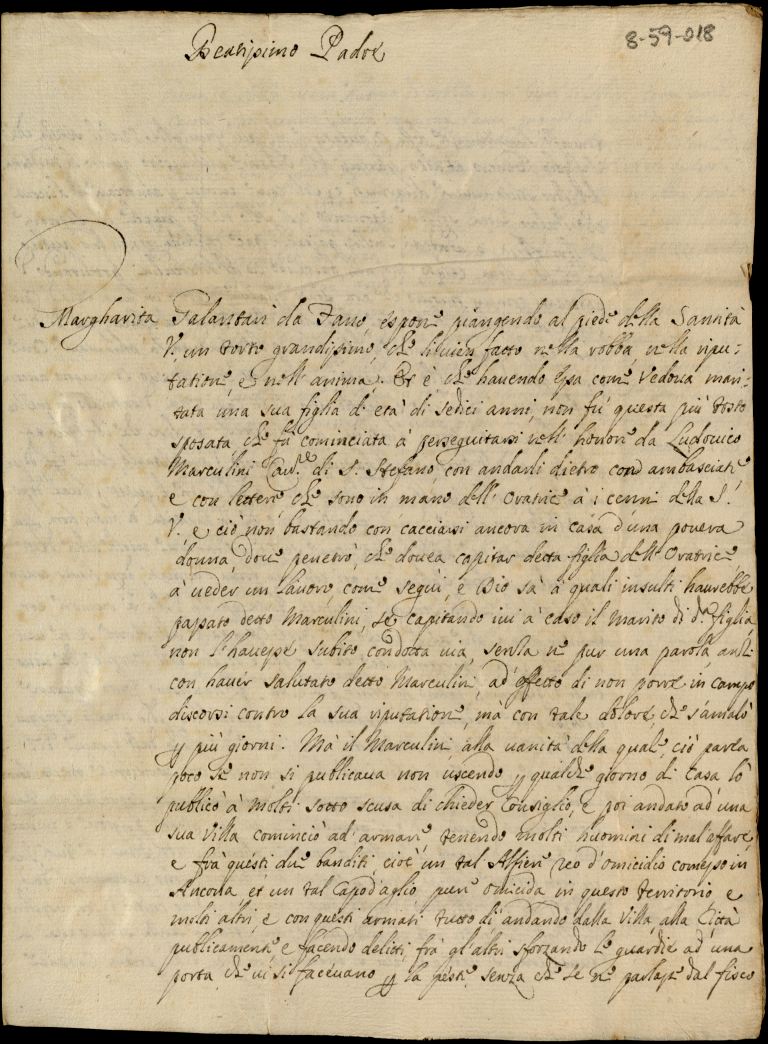 Beatissimo Padre
8-59-018
Margharita Galantari da Fano, espone piangendo al piede della Santità
V. un torto grandissimo, che li vien fatto nella robba, nella ripu=
tatione, e nell'anima. Et è che havendo essa come Vedova mari=
tata una sua figlia di età di sedici anni, non fù questa più tosto
sposata, che fù cominciata à perseguitarsi nell'honore da Ludovico
Marculini Cav.re di S. Stefano, con andarli dietro con ambasciate
e con lettere che sono in mano dell'Oratrice à i cenni della S.
V. e ciò non bastando con cacciarsi ancora in casa d'una povera
donna, dove penetrò, che dovea capitar detta figlia dell'Oratrice,
à veder un lavoro, come seguì, e Dio sà à quali insulti haurebbe
passato detto Marculini, se capitando ivi à caso il Marito di d.a figlia
non l'havesse subito condotta via, senza ne pur una parola, anzi
con haver salutato detto Marculini, ad effetto di non porre in campo
discorsi contro la sua riputatione, mà con tale dolore, che s'amalò
p più giorni. Mà il Marculini, alla vanità della quale, ciò parea
poco se non si publicava non uscendo p qualche giorno di Casa lò
publicò à molti sotto scusa di chieder Consiglio, e poi andato ad una
sua Villa cominciò ad armare, tenendo molti huomini di mal'affare,
e frà questi due banditi, cioè un tal Alfieri reo d'omicidio comesso in
Ancona et un tal Capod'aglio pure omicida in questo territorio e
molti altri, e con questi armati tutto dì andando dalla Villa alla Città
publicamente, e facendo delitti, frà gl'altri sforzando le guardie ad una
porta che vi si facevano p la peste, senza che se ne parlasse dal fisco